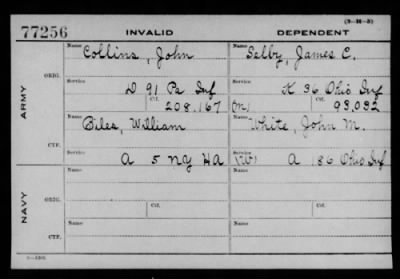 (3—H—5)
77256 INVALID DEPENDENT
Name Name
Collins, John Selby, James C.
ORIG. Service Service
D 91 Pa Inf K 36 Ohio Inf
Ctf. Ctf.
208.167 (m) 93,032
ARMY
Name Name
Biles, William White, John M.
CTF. Service Service
A 5 NY HA (W) A 186 Ohio Inf
Name Name
ORIG. Ctf. Ctf.
NAVY
Name Name
CTF.